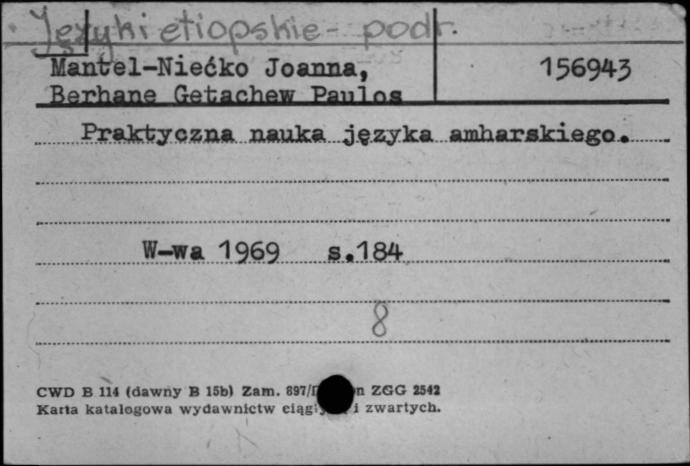 Języki etiopskie - podr.
Mantel-Niećko Joanna,
156943
Berhane Getachew Paulos
Praktyczna nauka języka amharskiego.
W-wa 1969 s.184
8
CWD B 114 (dawny B 15b) Zam. 897/ ZGG 2542
Karta katalogowa wydawnictw i zwartych.